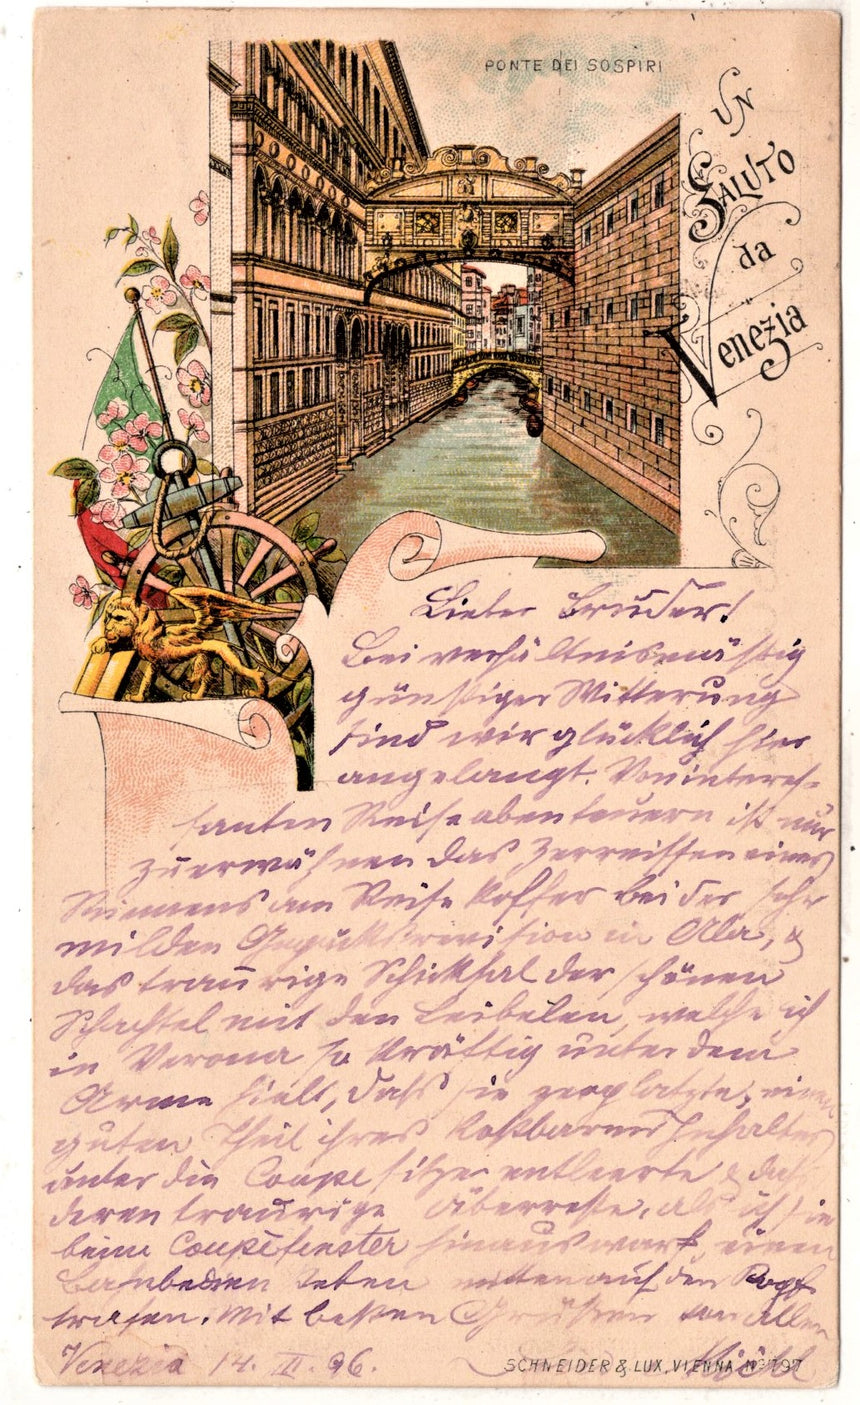 PONTE DEI SOSPIRI
UN
SALUTO
da
Venezia
Lieber Bruder!
Bei verhältnismäßig
günstiger Witterung
sind wir glücklich hier
angelangt. Von interes-
santen Reiseabenteuern ist nur
zu erwähnen das Zerreissen eines
Riemens am Reisekoffer bei der sehr
milden Gepäcksrevision in Ala, &
das traurige Schicksal der schönen
Schachtel mit den, welche ich
in Verona so kräftig unter dem
Arme hielt, daß sie zerplatzte, einen
guten Theil ihres kostbaren Inhaltes
unter die Coupésitze entleerte & daß
deren traurige Überreste, als ich sie
beim Coupéfenster hinauswarf, einen
Bahnbediensteten mitten auf den Kopf
trafen. Mit besten Grüßen von allen
Venezia 14. III. 96.
SCHNEIDER & LUX, VIENNA Nº 797